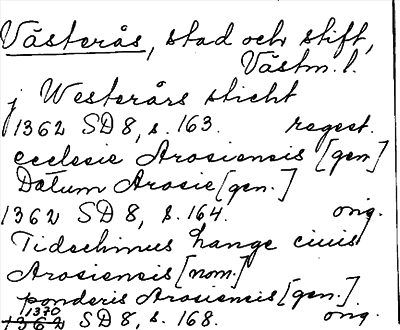 Västerås, stad och stift,
Västm. l.
j Westerårs sticht
1362 SD 8, s. 163. regest.
ecclesie Arosiensis [gen]
Datum Arosie [gen.]
1362 SD 8, s. 164. orig.
Tidechinus hange ciuis
Arosiensis [nom.]
ponderis Arosiensis [gen.]
1370
1362 SD 8, s. 168. orig.